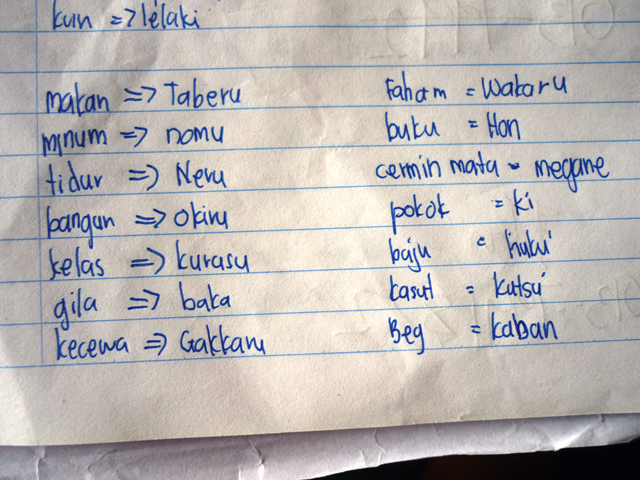 kun => lelaki
makan => Taberu
minum => nomu
tidur => Neru
bangun => Okiru
kelas => kurasu
gila => baka
kecewa => Gakkaru
Faham = Wakaru
buku = Hon
cermin mata = megane
pokok = ki
baju = huku
kasut = kutsu
Beg = kaban